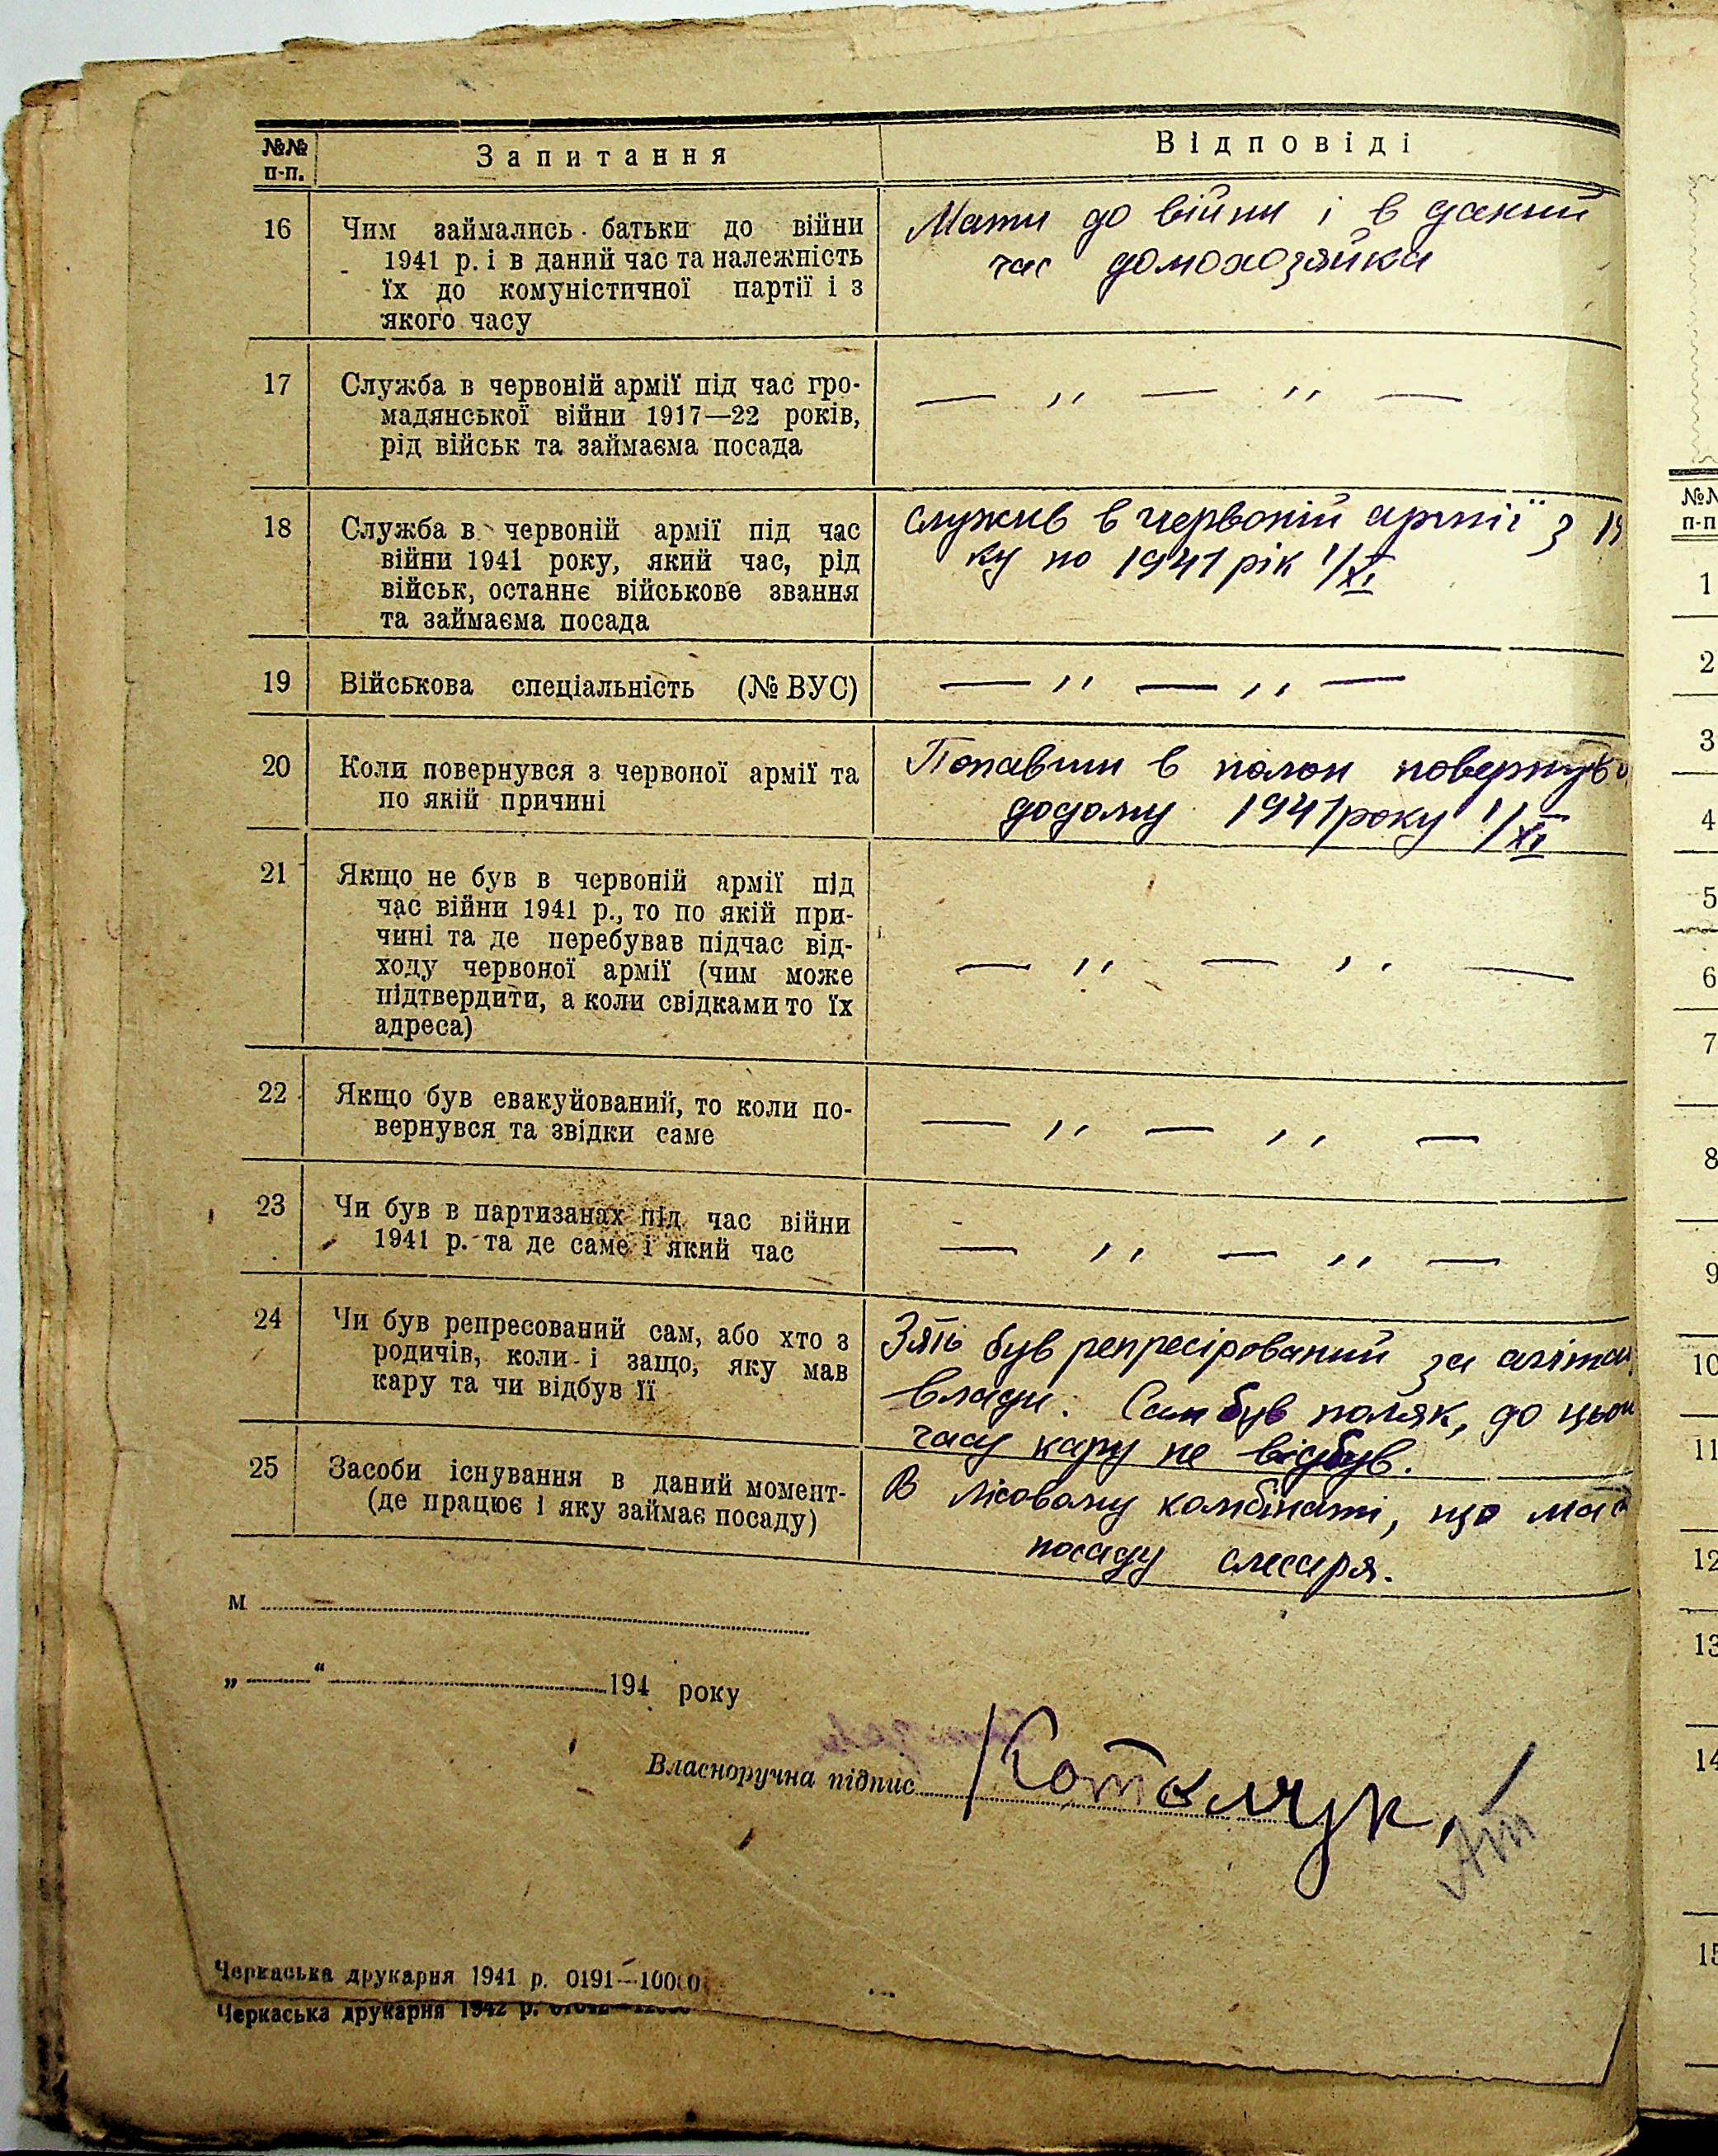 №№ п-п.
Запитання
Відповіді
16
Чим займались батьки до війни
1941 р. і в даний час та належність
їх до комуністичної партії і з
якого часу
Мати до війни і в даний
час домохозяйка
17
Служба в червоній армії під час гро-
мадянської війни 1917—22 років,
рід військ та займаєма посада
— ,, — ,, —
18
Служба в червоній армії під час
війни 1941 року, який час, рід
військ, останнє військове звання
та займаєма посада
служив в червоній армії з 19
ку по 1941 рік 1/XI
19
Військова спеціальність (№ ВУС)
— ,, — ,, —
20
Коли повернувся з червоної армії та
по якій причині
Попавши в полон повернувс
додому 1941 року 1/XI
21
Якщо не був в червоній армії під
час війни 1941 р., то по якій при-
чині та де перебував підчас від-
ходу червоної армії (чим може
підтвердити, а коли свідками то їх
адреса)
— ,, — ,, —
22
Якщо був евакуйований, то коли по-
вернувся та звідки саме
— ,, — ,, —
23
Чи був в партизанах під час війни
1941 р. та де саме і який час
— ,, — ,, —
24
Чи був репресований сам, або хто з
родичів, коли і защо, яку мав
кару та чи відбув її
Зять був репресірований за агіта
влади. Сам був поляк, до цьо
часу кару не відбув.
25
Засоби існування в даний момент-
(де працює і яку займає посаду)
В лісовому комбінаті, що має
посаду слесаря.
м
„ “ 194 року
Власноручна підпис
Черкаська друкарня 1941 р. 0191—10000
Черкаська друкарня 1942 р.
№№
п-п
1
2
3
4
5
6
7
8
9
10
11
12
13
14
15